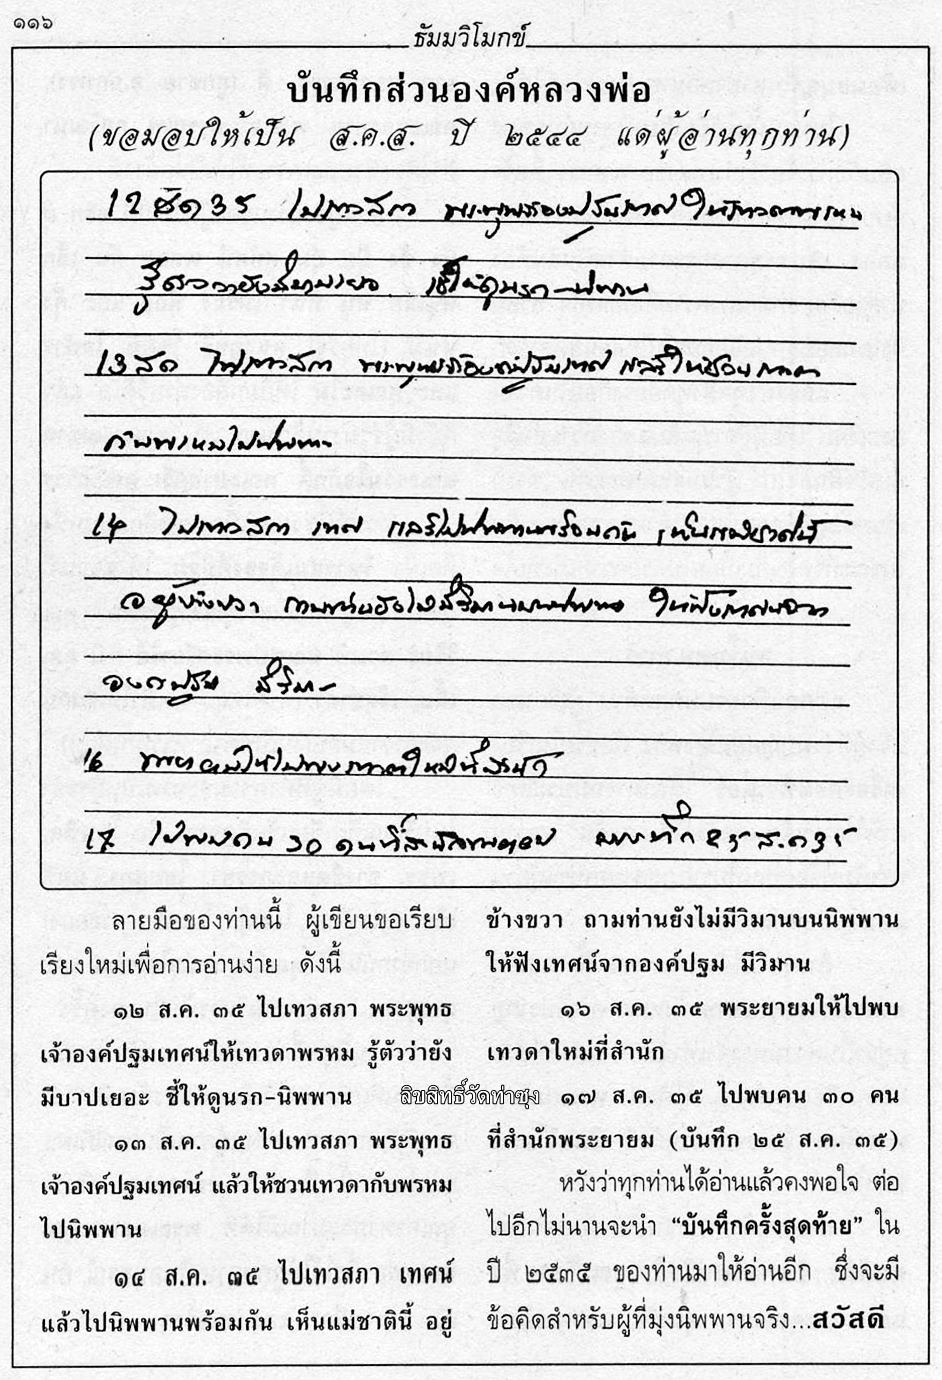 ๑๑๖
ธัมมวิโมกข์
บันทึกส่วนองค์หลวงพ่อ
(ขอมอบให้เป็น ส.ค.ส. ปี ๒๕๔๔ แด่ผู้อ่านทุกท่าน)
12 สค 35 ไปเทวสภา พระพุทธองค์ปฐมเทศน์ ให้เทวดาพรหม
รู้ตัวว่ายังมีบาปเยอะ ชี้ให้ดูนรก-นิพพาน
13 สค ไปเทวสภา พระพุทธองค์ปฐมเทศน์ แล้วให้ชวนเทวดา
กับพรหมไปนิพพาน
14 ไปเทวสภา เทศน์ แล้วไปนิพพานพร้อมกัน เห็นแม่ชาตินี้
อยู่ข้างขวา ถามท่านยังไม่มีวิมานบนนิพพาน ให้ฟังเทศน์จาก
องค์ปฐม มีวิมาน
16 พระยายมให้ไปพบเทวดาใหม่ที่สำนัก
17 ไปพบคน 30 คนที่สำนักพระยายม บันทึก 25 ส.ค 35
ลายมือของท่านนี้ ผู้เขียนขอเรียบ
เรียงใหม่เพื่อการอ่านง่าย ดังนี้
๑๒ ส.ค. ๓๕ ไปเทวสภา พระพุทธ
เจ้าองค์ปฐมเทศน์ให้เทวดาพรหม รู้ตัวว่ายัง
มีบาปเยอะ ชี้ให้ดูนรก-นิพพาน
๑๓ ส.ค. ๓๕ ไปเทวสภา พระพุทธ
เจ้าองค์ปฐมเทศน์ แล้วให้ชวนเทวดากับพรหม
ไปนิพพาน
๑๔ ส.ค. ๓๕ ไปเทวสภา เทศน์
แล้วไปนิพพานพร้อมกัน เห็นแม่ชาตินี้ อยู่
ลิขสิทธิ์วัดท่าซุง
ข้างขวา ถามท่านยังไม่มีวิมานบนนิพพาน
ให้ฟังเทศน์จากองค์ปฐม มีวิมาน
๑๖ ส.ค. ๓๕ พระยายมให้ไปพบ
เทวดาใหม่ที่สำนัก
๑๗ ส.ค. ๓๕ ไปพบคน ๓๐ คน
ที่สำนักพระยายม (บันทึก ๒๕ ส.ค. ๓๕)
หวังว่าทุกท่านได้อ่านแล้วคงพอใจ ต่อ
ไปอีกไม่นานจะนำ “บันทึกครั้งสุดท้าย” ใน
ปี ๒๕๓๕ ของท่านมาให้อ่านอีก ซึ่งจะมี
ข้อคิดสำหรับผู้ที่มุ่งนิพพานจริง...สวัสดี